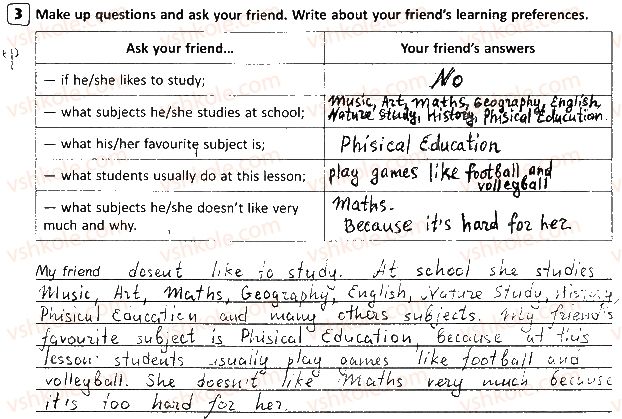 3 Make up questions and ask your friend. Write about your friend's learning preferences.
Ask your friend... Your friend's answers
— if he/she likes to study; No
— what subjects he/she studies at school; Music, Art, Maths, Geography, English
Nature Study, History, Phisical Education.
— what his/her favourite subject is; Phisical Education
— what students usually do at this lesson; play games like football and
volleyball
— what subjects he/she doesn't like very Maths.
much and why. Because it's hard for her
My friend dosent like to study. At school she studies
Music, Art, Maths, Geography, English, Nature Study, History,
Phisical Education and many others subjects. My friend's
favourite subject is Phisical Education, because at this
lesson students usually play games like football and
volleyball. She doesn't like Maths very much because
it's too hard for her.
vshkole.com